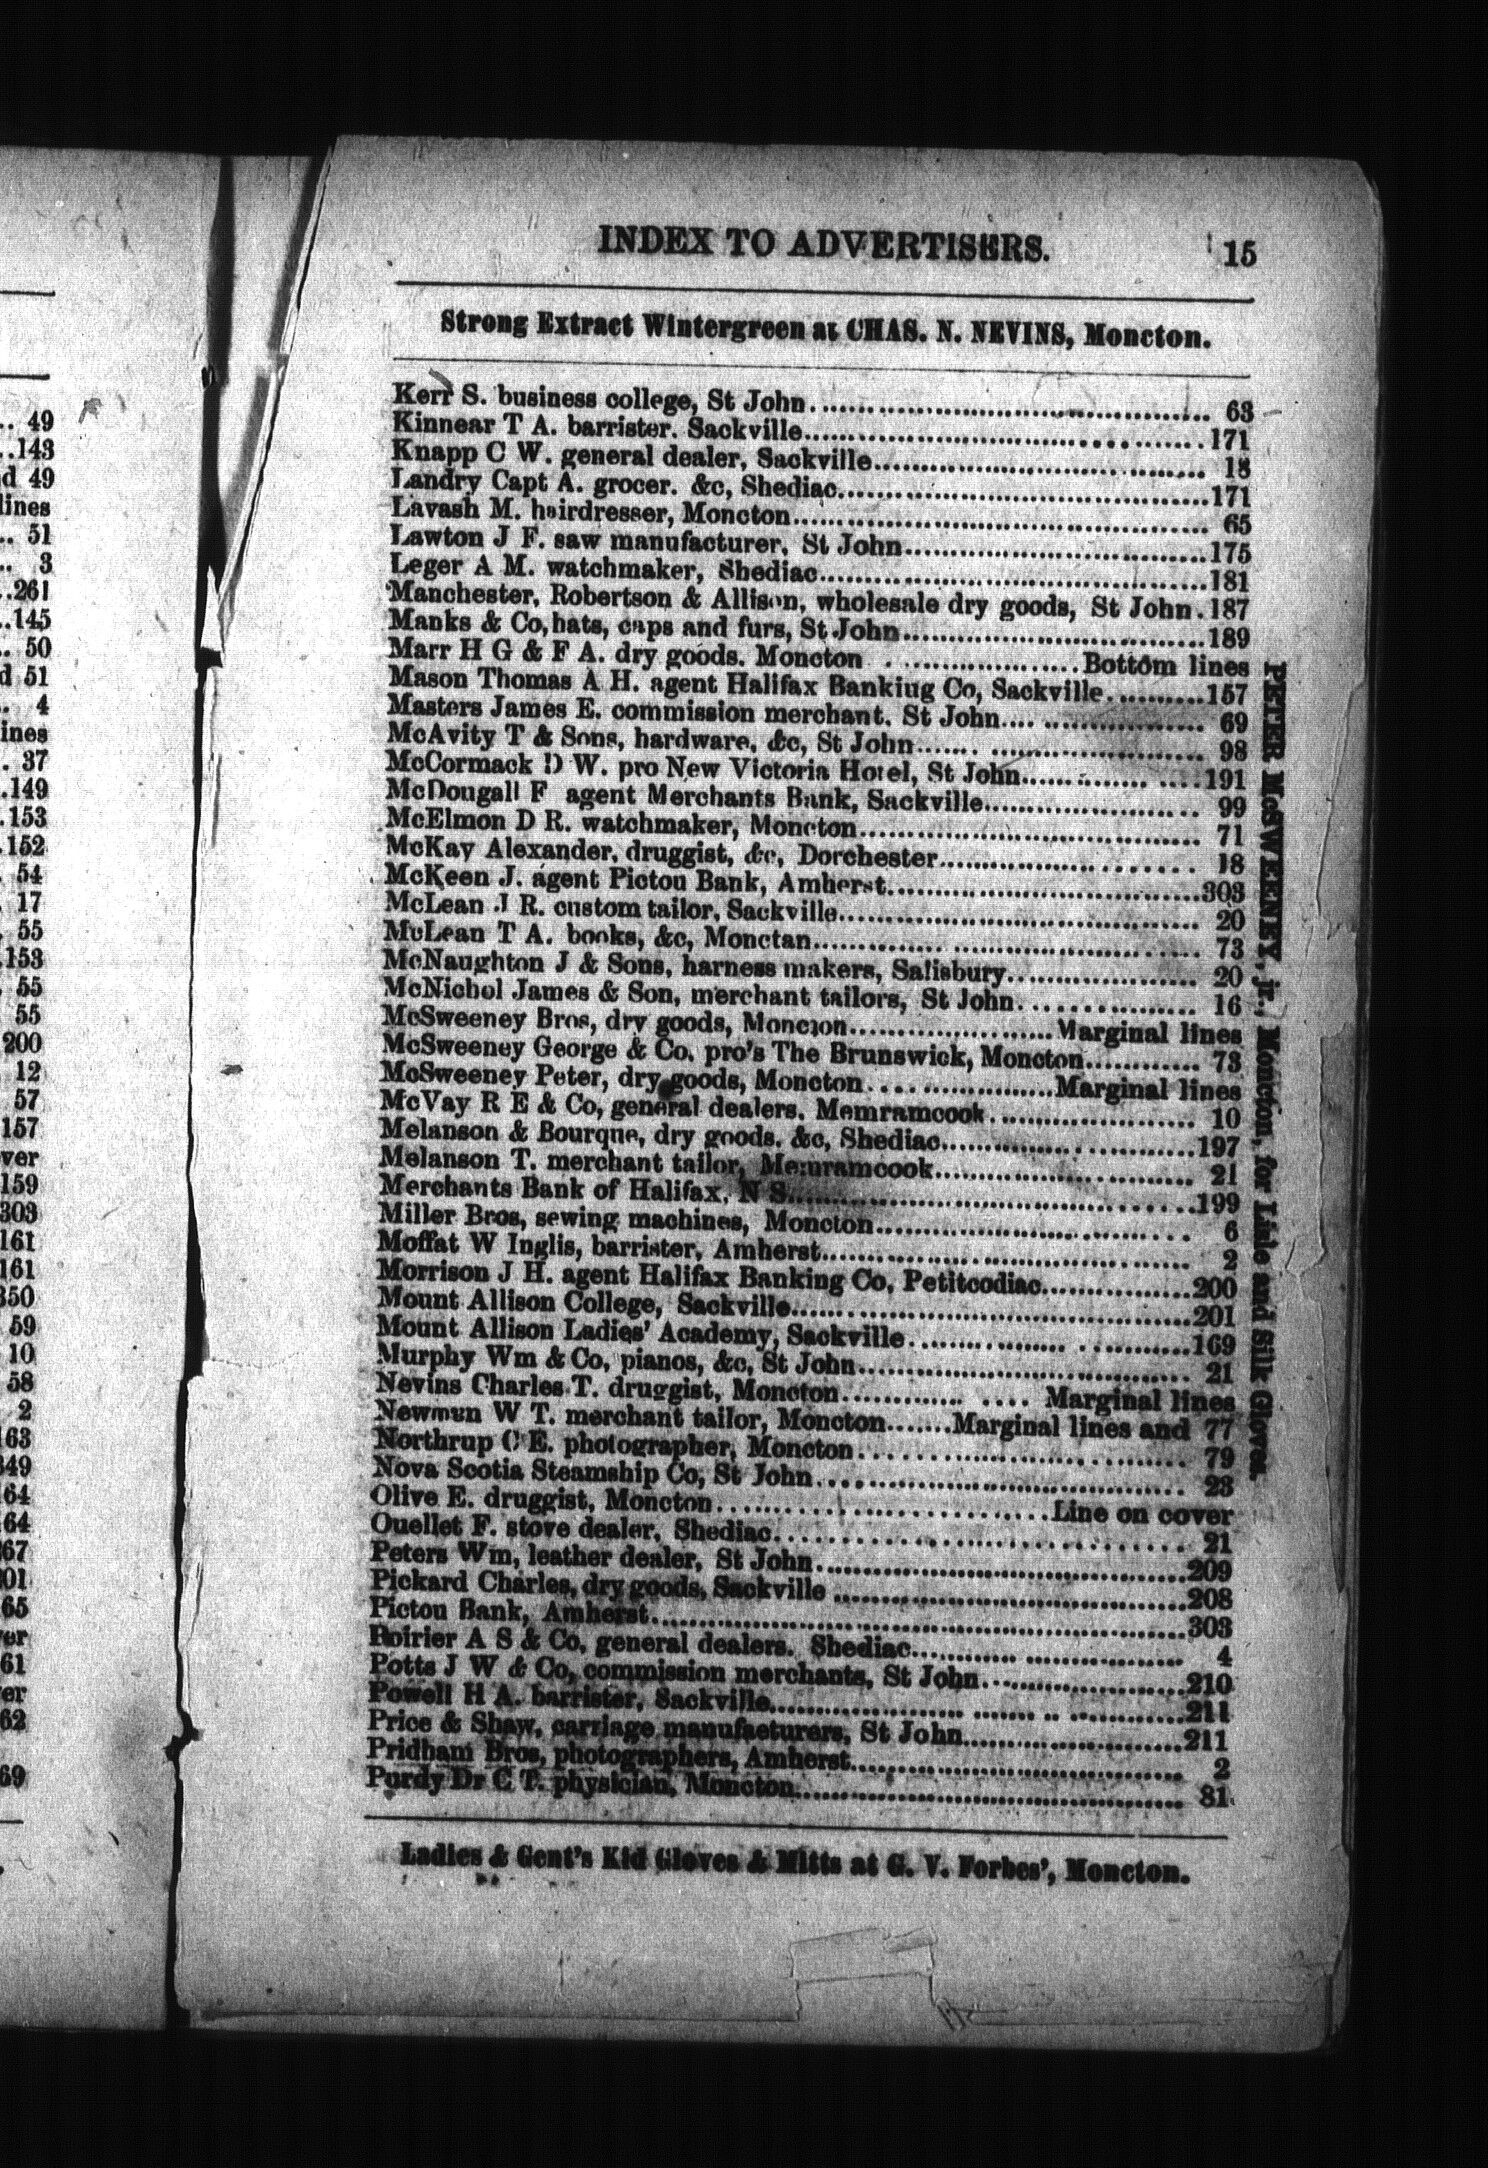 49
143
d 49
lines
51
3
261
145
50
d 51
4
ines
37
149
153
152
54
17
55
153
55
55
200
12
57
157
ver
159
303
161
161
350
59
10
58
2
163
349
64
64
267
65
61
62
69
INDEX TO ADVERTISERS. 15
Strong Extract Wintergreen at CHAS. N. NEVINS, Moncton.
Kerr S. business college, St John. 63
Kinnear T A. barrister. Sackville 171
Knapp C W. general dealer, Sackville 18
Landry Capt A. grocer. &c, Shediac 171
Lavash M. hairdresser, Moncton 65
Lawton J F. saw manufacturer. St John 175
Leger A M. watchmaker, Shediac 181
Manchester, Robertson & Allison, wholesale dry goods, St John 187
Manks & Co, hats, caps and furs, St John 189
Marr H G & F A. dry goods. Moncton Bottom lines
Mason Thomas A H. agent Halifax Banking Co, Sackville 157
Masters James E. commission merchant. St John 69
McAvity T & Sons, hardware, &c, St John 98
McCormack D W. pro New Victoria Hotel, St John 191
McDougall F agent Merchants Bank, Sackville 99
McElmon D R. watchmaker, Moncton 71
McKay Alexander, druggist, &c, Dorchester 18
McKeen J. agent Pictou Bank, Amherst 303
McLean J R. custom tailor, Sackville 20
McLean T A. books, &c, Monctan 73
McNaughton J & Sons, harness makers, Salisbury 20
McNichol James & Son, merchant tailors, St John 16
McSweeney Bros, dry goods, Moncton Marginal lines
McSweeney George & Co. pro's The Brunswick, Moncton 73
McSweeney Peter, dry goods, Moncton Marginal lines
McVay R E & Co, general dealers. Memramcook 10
Melanson & Bourque, dry goods. &c, Shediac 197
Melanson T. merchant tailor, Memramcook 21
Merchants Bank of Halifax, N S 199
Miller Bros, sewing machines, Moncton 6
Moffat W Inglis, barrister, Amherst 2
Morrison J H. agent Halifax Banking Co, Petitcodiac 200
Mount Allison College, Sackville 201
Mount Allison Ladies' Academy, Sackville 169
Murphy Wm & Co, pianos, &c, St John 21
Nevins Charles T. druggist, Moncton Marginal lines
Newman W T. merchant tailor, Moncton Marginal lines and 77
Northrup C E. photographer, Moncton 79
Nova Scotia Steamship Co, St John 23
Olive E. druggist, Moncton Line on cover
Ouellet F. stove dealer, Shediac 21
Peters Wm, leather dealer, St John 209
Pickard Charles, dry goods, Sackville 208
Pictou Bank, Amherst 303
Poirier A S & Co, general dealers. Shediac 4
Potts J W & Co, commission merchants, St John 210
Powell H A. barrister, Sackville 211
Price & Shaw, carriage manufacturers, St John 211
Pridham Bros, photographers, Amherst 2
Purdy Dr C T. physician, Moncton 81
Ladies & Gent's Kid Gloves & Mitts at G. V. Forbes', Moncton.
PETER McSWEENEY, jr., Moncton, for Lisle and Silk Gloves.